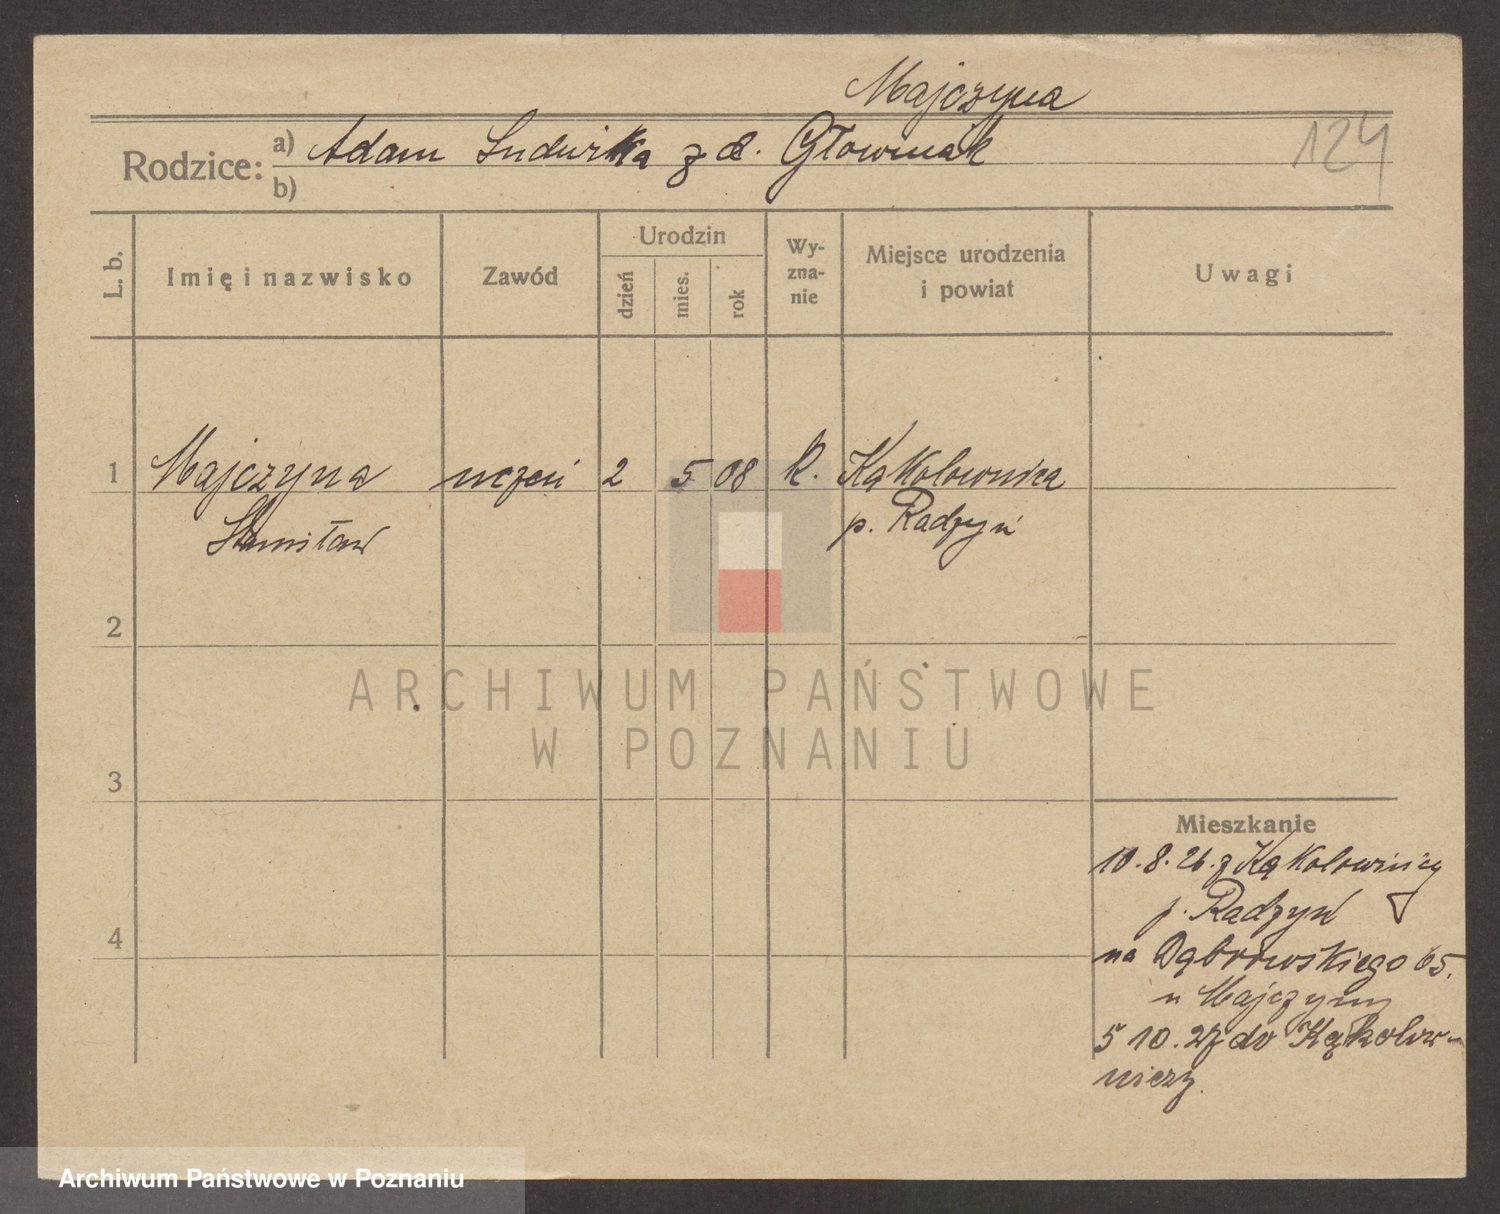 Majczyna
Rodzice: a) Adam Ludwika z d. Głowniak
b)
124
L. b. Imię i nazwisko Zawód Urodzin dzień mies. rok Wy-zna-nie Miejsce urodzenia i powiat Uwagi
1 Majczyna uczeń 2 5 08 k. Kąkolownica
Stanisław p. Radzyń
2
ARCHIWUM PAŃSTWOWE
W POZNANIU
3
Mieszkanie
10.8.26. z Kąkolownicy
p. Radzyń
4
na Dąbrowskiego 65.
u Majczyny
5 10.27 do Kąkolow-
nicy.
Archiwum Państwowe w Poznaniu